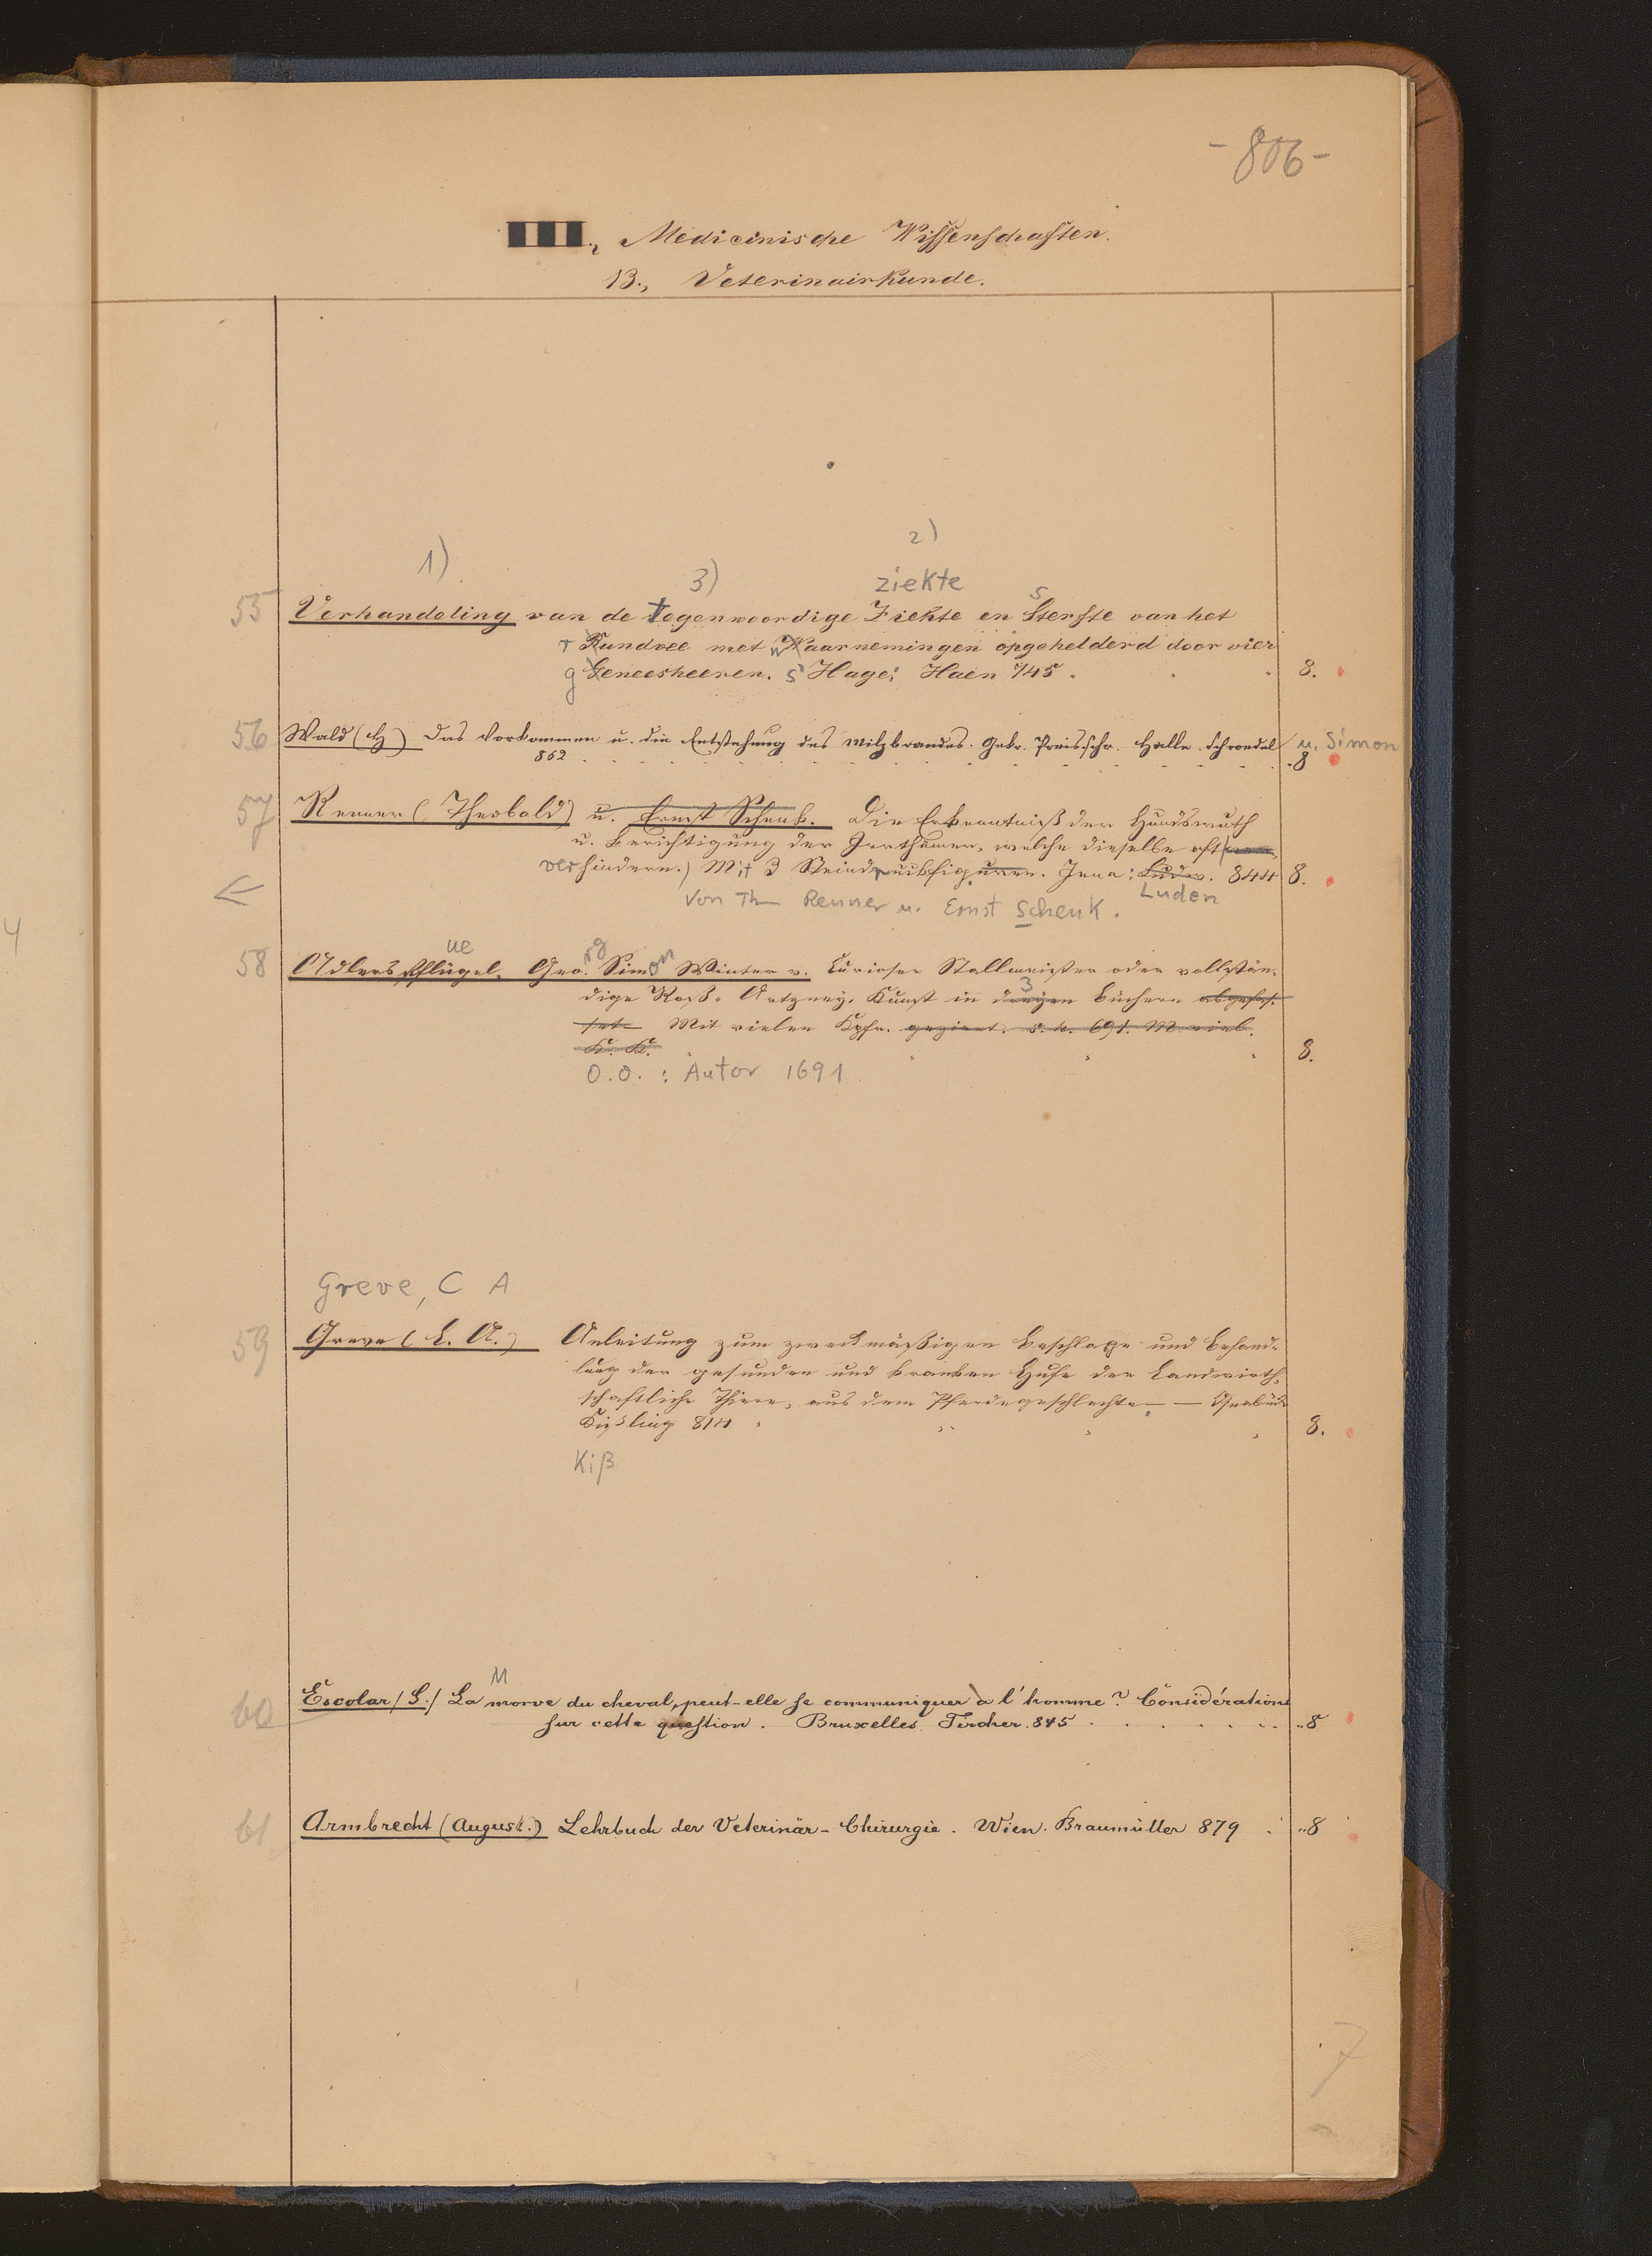 - 806 -
III., Medicinische Wissenschaften.
B., Veterinairkunde.
1) 3) 2)
ziekte s
55 Verhandeling van de tegenwoordige Ziekte en Sterfte van het
r Rundvee met w Waarnemingen opgehelderd door vier
g Geneesheeren. s' Hage: Haen 745. 8.
56 Wald (H) Das Vorkommen u. die Entstehung des Milzbrandes. Gekr. Preisschr. Halle. Schroedel u. Simon
862 8
57 Renner (Theobald) u. Ernst Schenk. Die Erkenntniß der Hundswuth
u. Berichtigung der Irrthümer, welche dieselbe oft
verhindern.) Mit 3 Steindruckfiguren. Jena: Luden. 844 8.
Von Th Renner u. Ernst Schenk. Luden
4
ue rg on
58 Adlersflügel, Geo. Simon Winter v. Curioser Stallmeister oder vollstän-
3
dige Roß- Artzney- Kunst in dreyen Büchern abgefas-
set. Mit vielen Kpfr. geziert. s. l. 691. M. viel.
K. K. 8.
O.O. : Autor 1691
Greve, C A
59 Greve (C. A.) Anleitung zum zweckmäßigen Beschlage und Behand-
lung der gesunden und kranken Hufe der Landwirth-
schaftliche Thiere, aus dem Pferdegeschlechte. — Osnabrück
Kißling 814 8.
Kiß
M
60 Escolar (G.) La morve du cheval, peut-elle se communiquer à l'homme? Considérations
sur cette question. Bruxelles. Tircher. 845 8
61 Armbrecht (August.) Lehrbuch der Veterinär-Chirurgie. Wien. Braumüller 879 8
7